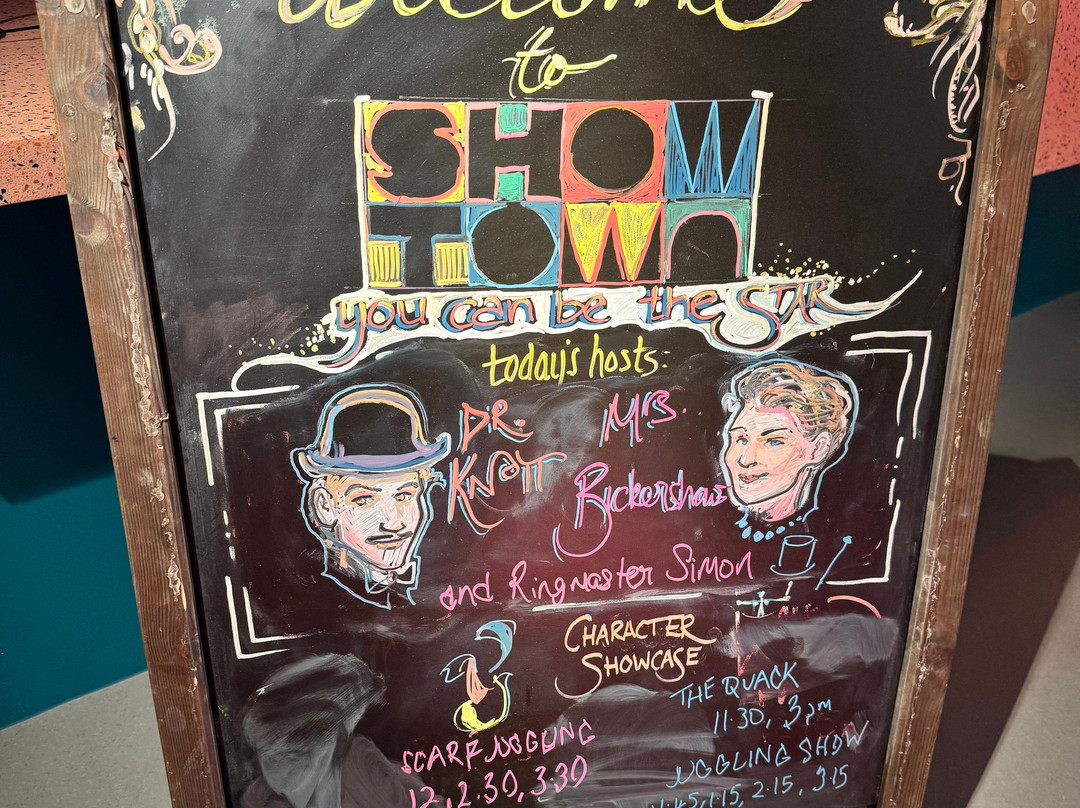 Welcome
to
SHOW
TOWN
you can be the STAR
today's hosts:
DR.
KNOTT
MRS.
Bickershaw
and Ringmaster Simon
CHARACTER
SHOWCASE
THE QUACK
11.30, 3pm
SCARF JUGGLING
12, 2.30, 3.30
JUGGLING SHOW
1.15, 2.15, 3.15